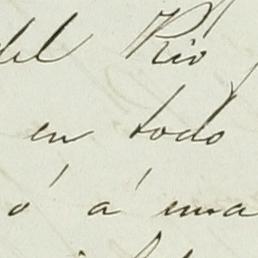 del Rio
en todo
ó á una